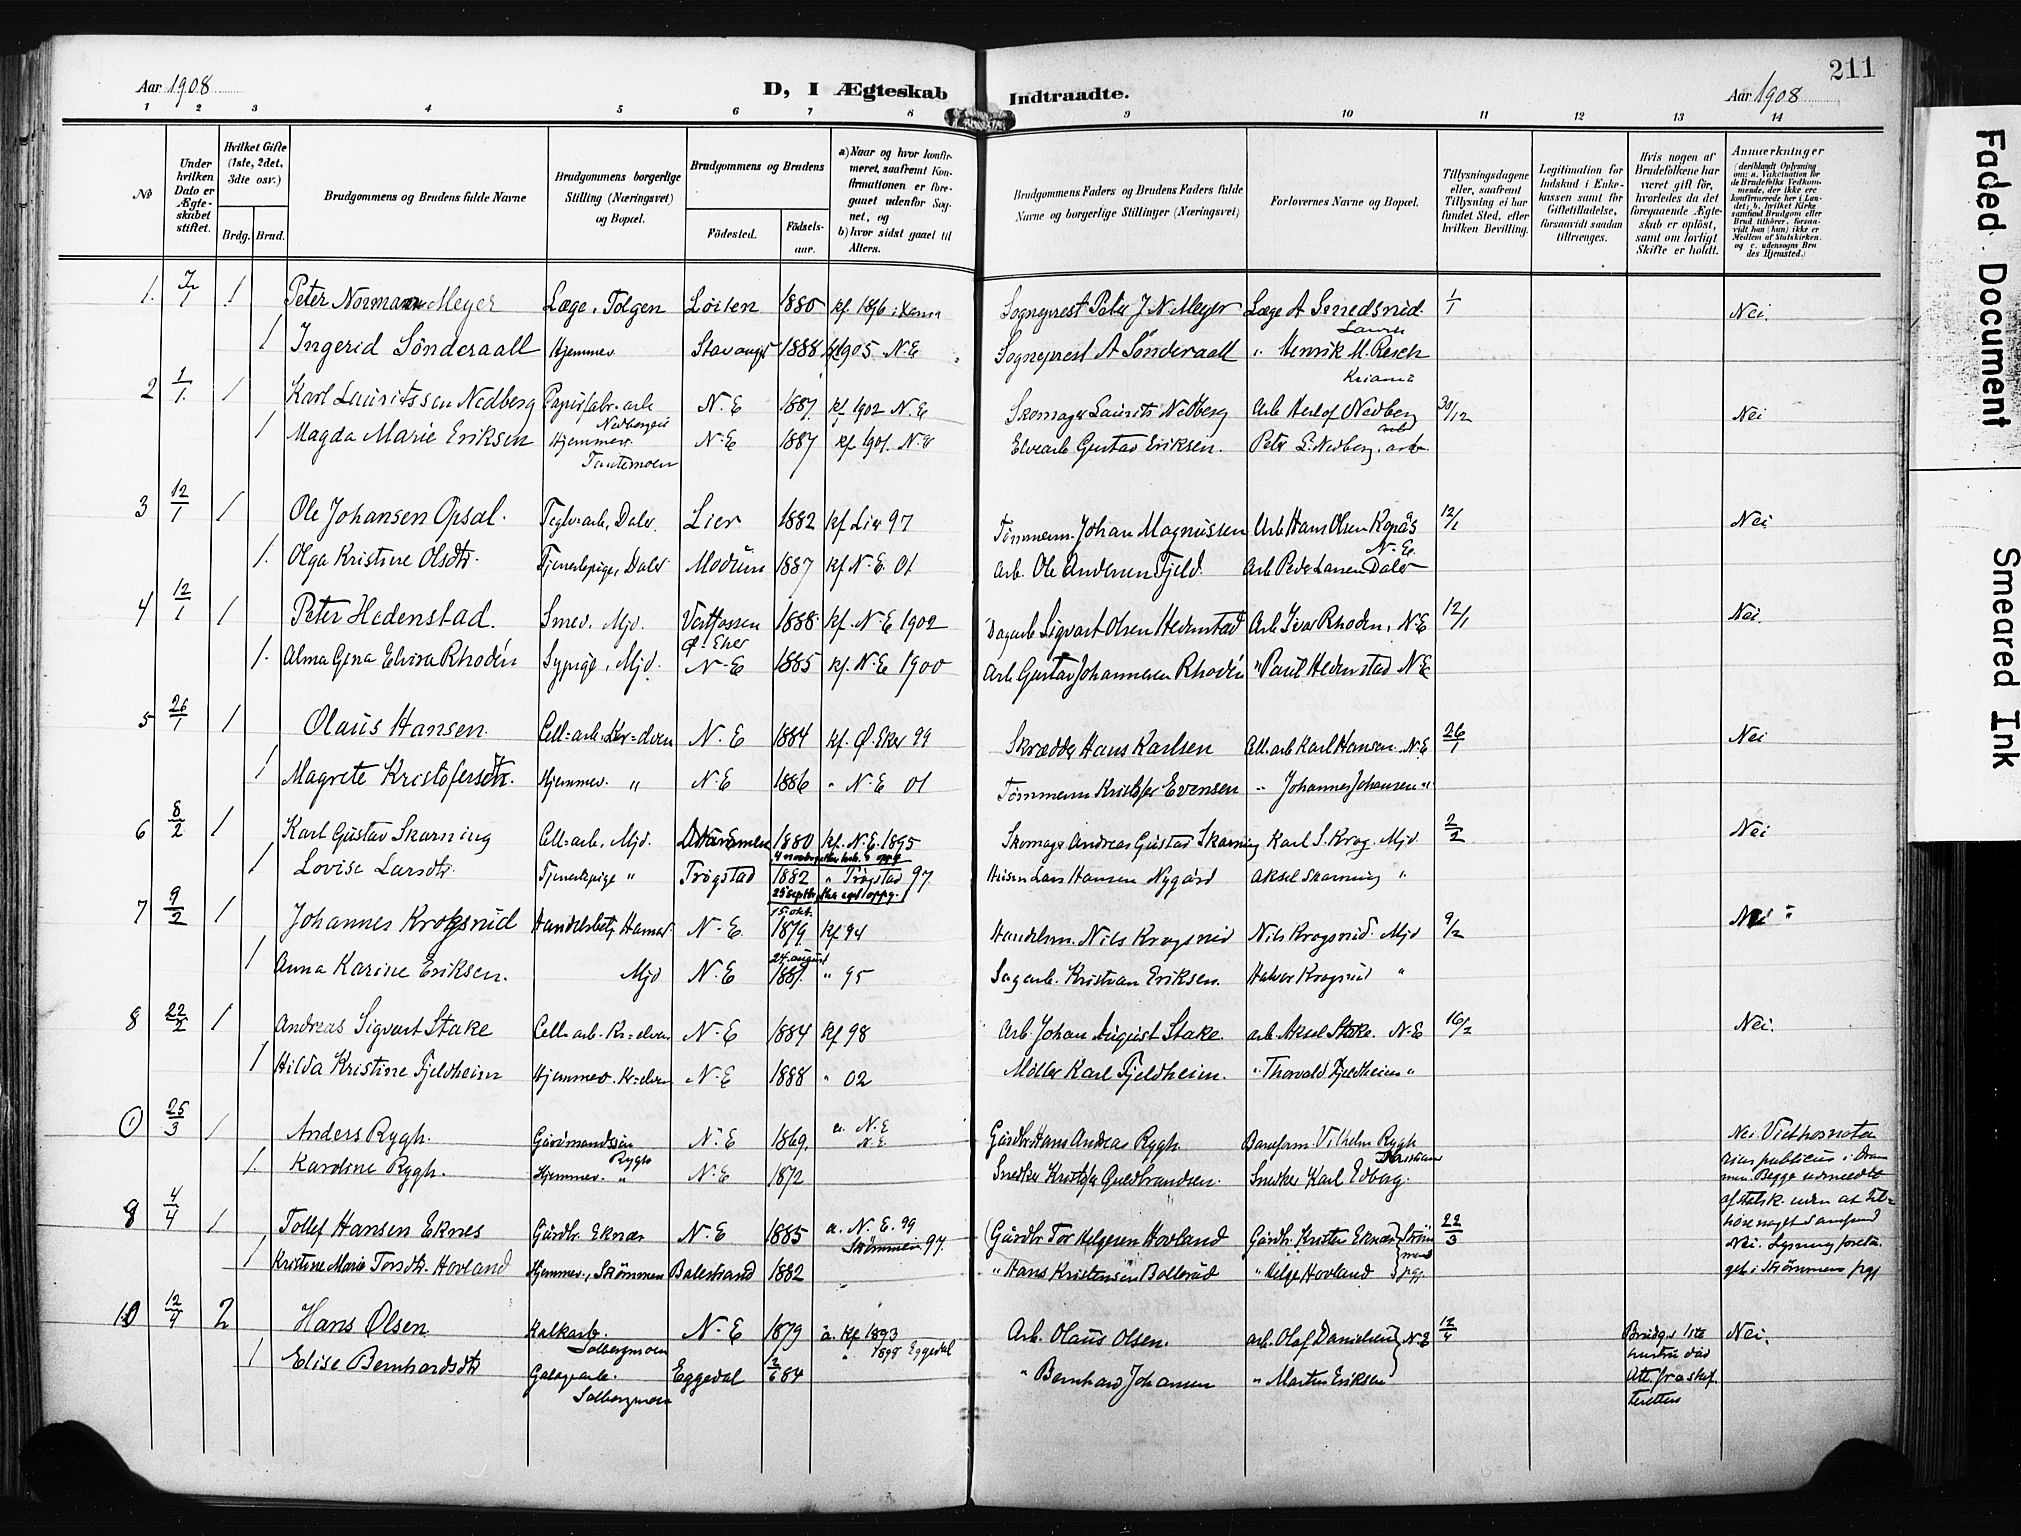 211
Aar 1908
D, I Ægteskab Indtraadte.
Aar 1908
1 2 3 4 5 6 7 8 9 10 11 12 13 14
№
Under hvilken Dato er Ægteskabet stiftet.
Hvilket Gifte (1ste, 2det, 3die osv.)
Brdg. Brud.
Brudgommens og Brudens fulde Navne
Brudgommens borgerlige Stilling (Næringsvei) og Bopæl.
Brudgommens og Brudens
Fødested.
Fødselsaar.
a) Naar og hvor konfirmeret, saafremt Konfirmationen er foregaaet udenfor Sognet, og
b) hvor sidst gaaet til Alters.
Brudgommens Faders og Brudens Faders fulde Navne og borgerlige Stillinger (Næringsvei)
Forlovernes Navne og Bopæl.
Tillysningsdagene eller, saafremt Tillysning ei har fundet Sted, efter hvilken Bevilling.
Legitimation for Indskud i Enkekassen samt for Giftetilladelse, forsaavidt saadan tiltrænges.
Hvis nogen af Brudefolkene har været gift før, hvorledes da det foregaaende Ægteskab er opløst, samt om lovligt Skifte er holdt.
Anmærkninger
(deriblandt Oplysning om: a. Vakcination for de Brudefolks Vedkommende, der ikke ere konfirmerede her i Landet; b. hvilket Kirkesamfund Brudgom eller Brud tilhører, forsaavidt han (hun) ikke er Medlem af Statskirken, og c. udensogns Brudes Hjemsted.)
1. 7/1 1 Peter Norman Meyer Læge, Tolgen Løiten 1880 kf. 1896 i Sogneprest Peter J. N. Meyer Læge A Smedsrud. 1/1 Nei.
1 Ingerid Sønderaall Hjemmev. Stavanger 1888 kf 1905 N.E Sogneprest A Sønderaall " Henrik M. Resch
Kriania
2 1/1 1 Karl Lauritssen Nedberg Papirfabr-arb N.E 1887 kf 1902 N.E Skomager Laurits Nedberg Arb Herlof Nedberg 30/12 Nei
1 Magda Marie Eriksen Hjemmev. N.E 1887 kf 1901. N.E Elvearb Gustav Eriksen. Peter L. Nedberg, arb.
3 12/1 1 Ole Johansen Opsal. Teglv-arb, Daler. Lier 1882 kf Lier 97 Tømmerm. Johan Magnussen Arb Hans Olsen Kopås 12/1 Nei
N.E.
1. Olga Kristine Olsdtr. Tjenestepige, Daler Modum 1887 kf N.E. 01 Arb. Ole Andersen Fjeld. Arb Peder Larsen Daler
4 12/1 1 Peter Hedenstad. Smed. Mjd. Vestfossen 1888 kf. N.E 1902 Dagarb Sigvart Olsen Hedenstad Arb Ivar Rhoden, N.E 12/1 Nei.
Ø. Eker
1. Alma Gina Elvira Rhodén Sypige, Mjd. N-E 1885 kf. N.E 1900 Arb Gustav Johannesen Rhodén " Paul Hedenstad N.E
5 26/1 1 Olaus Hansen. Cell-arb. N.E 1884 kf. Ø. Eker 99 Skrædder Hans Karlsen Karl Hansen. N.E 26/1 Nei
1 Magrete Kristofersdtr. Hjemmev. " N.E 1886 " N.E 01 Tømmerm Kristofer Evensen " Johannes Johansen "
6 8/2 1 Karl Gustav Skarning Cell-arb, Mjd. Drammen 1880 kf. N.E. 1895 Skomager Andreas Gustav Skarning Karl S. Krog. Mjd 2/2 Nei
1 Lovise Larsdtr. Tjenestepige " Trøgstad 1882 " Trøgstad 97. Lars Hansen Nygård Aksel Skarning "
7 9/2 1 Johannes Krogsrud Handelsbetj. Hamar N.E. 15. okt. 1879 kf 94 Handelsm. Nils Krogsrud Nils Krogsrud. Mjd 9/2 Nei
1 Anna Karine Eriksen. Mjd N.E 24. august 1881. " 95 Sagarb. Kristian Eriksen. Halvor Krogsrud "
8 22/2 1 Andreas Sigvart Stake Cell-arb. Kr-elven N.E 1884 kf 98 Arb. Johan August Stake. arb. Aksel Stake. N.E 16/2 Nei.
1 Hilda Kristine Fjeldheim Hjemmev. Kr-elven N.E 1888 " 02 Møller Karl Fjeldheim. " Thorvald Fjeldheim "
1 25/3 1 Anders Rygh. Gårdmandssøn Rygh N.E 1869. a. N.E N.E. Gårdbr Hans Andreas Rygh. Baneform. Vilhelm Rygh Nei Viet hos notarius publicus i Drammen. Begge udmeldt af statsk. uden at tilhøre noget samfund
1. Karoline Rygh. Hjemmev. " N.E 1872 Snedker Kristofer Guldbrandsen. Snedker Karl Edborg.
9 4/4 1 Tollef Hansen Eknes Gårdbr. Eknær N.E 1885 a. N.E. 99 Gårdbr Tor Helgesen Hovland Gårdbr. Krister Eknæs 22/3 Nei. Lysning foretaget i Strømmens prgj
1 Kristine Marie Torsdtr. Hovland Hjemmev., Skømmen Balestrand 1882 Skømmen 97. " Hans Kristensen Bollerud " Helge Hovland
10 12/4 2 Hans Olsen Kalkarb. Solbergmoen N.E 1879 a. kf 1893 Arb. Olaus Olsen. arb. Olaf Danielsen N.E 12/4 Brudgs 1ste hustru død Att. fra skifteretten Nei.
1 Elise Bernhardsdtr Solbergmoen Eggedal 2/6 84 " 1898 Eggedal " Bernhard Johansen " Martin Eriksen
Faded Document
Smeared Ink